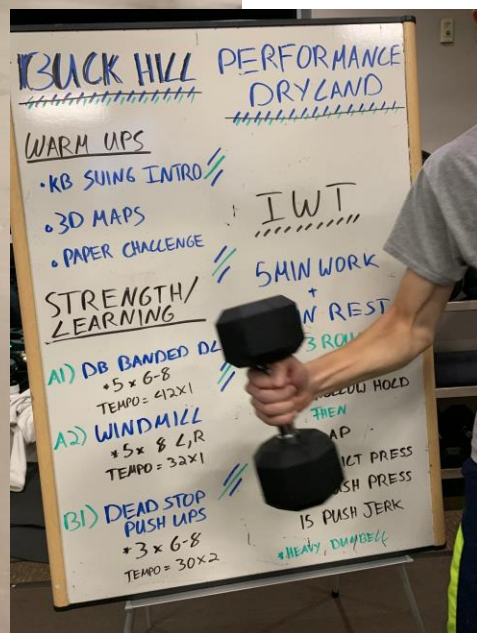 BUCK HILL
PERFORMANCE
DRYLAND
WARM UPS
• KB SWING INTRO
• 3D MAPS
• PAPER CHALLENGE
STRENGTH/
LEARNING
A1) DB BANDED
*5 x 6-8
TEMPO = 42X1
A2) WINDMILL
*5 x 8 L,R
TEMPO = 32X1
B1) DEAD STOP
PUSH UPS
*3 x 6-8
TEMPO = 30X2
IWT
5 MIN WORK
+
REST
3
HOLD
THEN
PRESS
PRESS
15 PUSH JERK
*HEAVY, DUMBELL